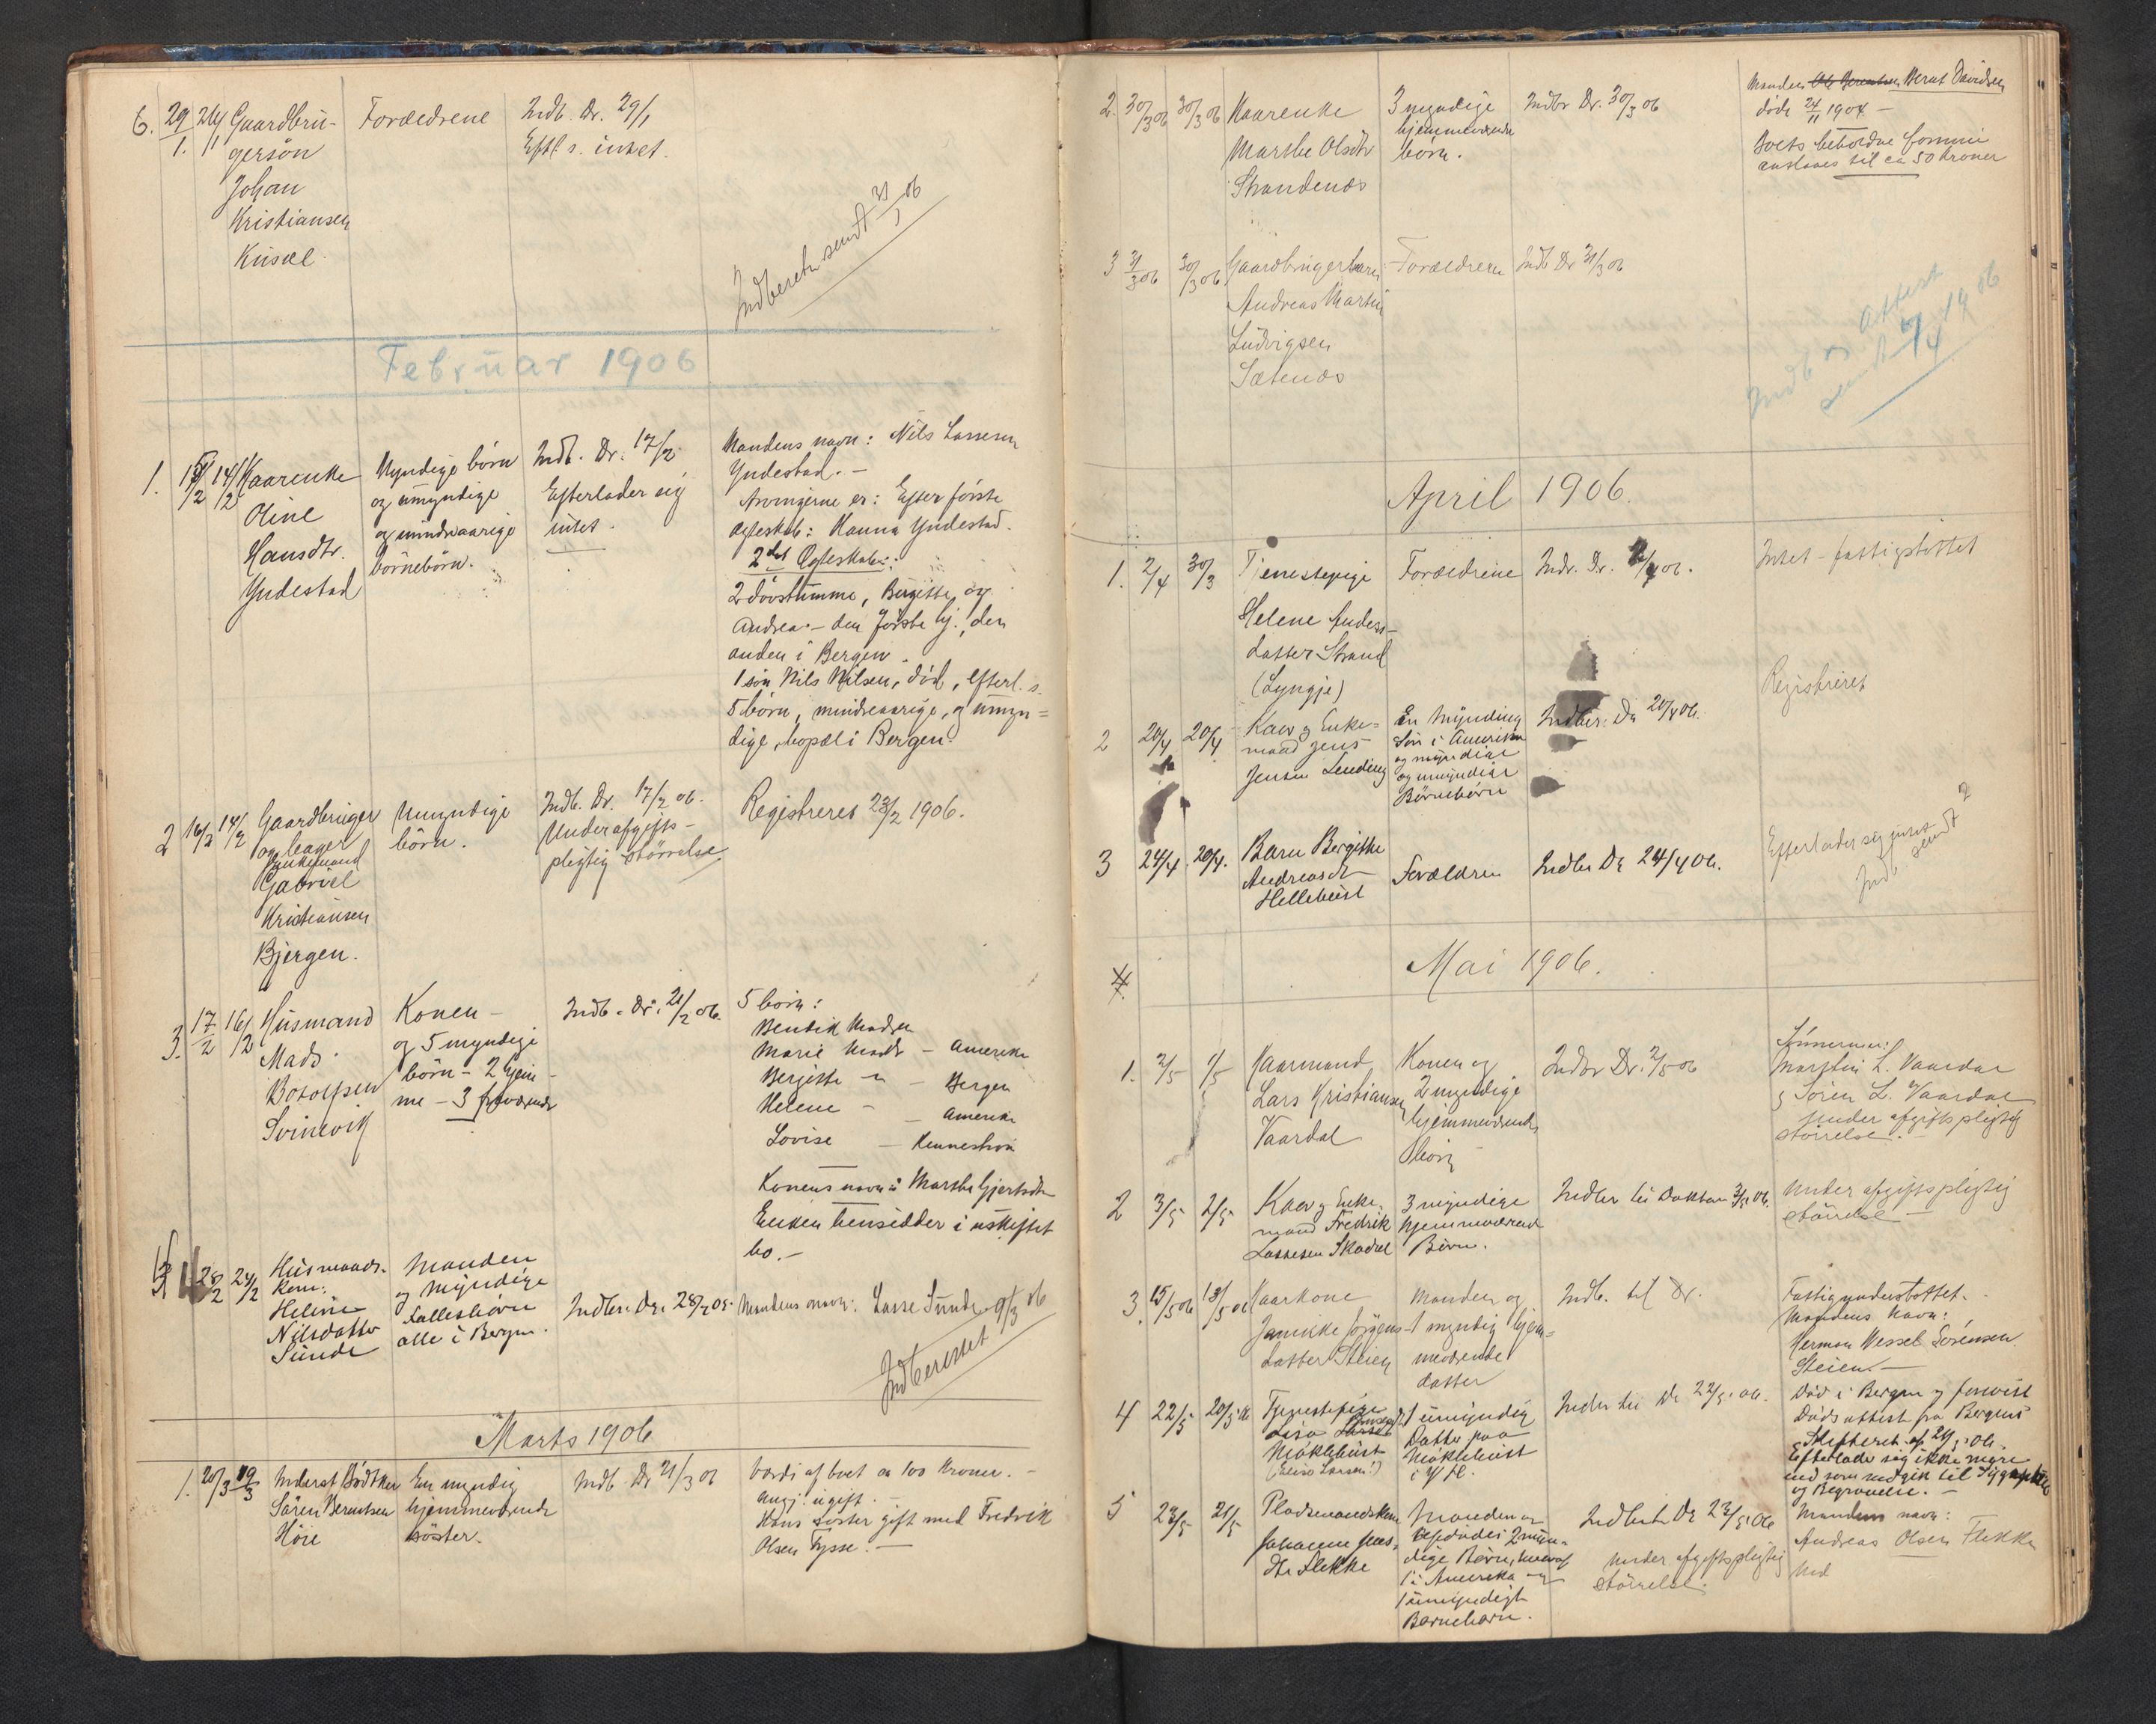 6. 29/1. 26/1 Gaardbru-
gersön
Johan
Kristiansen
Forældrene
Indb. Dr. 29/1
Eftl. s. intet.
Indberetn. sendt 31/1 06
Februar 1906
1. 15/2 14/2 Kaarenke
Oline
Hansdtr.
Yndestad
Myndige börn
og umyndige
og mindreaarige
börnebörn.
Indb. Dr. 17/2
Efterlader sig
intet.
Mandens navn: Nils Lassesen
Yndestad. —
Arvingerne er: Efter förste
Ægteskab: Hanna Yndestad.
2det Ægteskab:
2 dövstumme, Birgitte og
Andrea. — den förste hj., den
anden i Bergen.
1 sön Nils Nilsen, död, efterl. s.
5 börn, mindreaarige, og umyn=
dige, bopæl i Bergen.
2 16/2 14/2 Gaardbruger
og
Enkemand
Gabriel
Kristiansen
Bjergen.
Umyndige
börn.
Indb. Dr. 17/2 06.
Under afgifts-
pligtig störrelse
Registreret 23/2 1906.
3. 17/2 16/2 Husmand
Mads
Botolfsen
Svinevik
Konen —
og 5 myndige
börn — 2 hjem-
me — 3 fraværende
Indb. Dr. 21/2 06.
5 börn:
Bendik Madsen
Marie Madsdr — Amerika
Bergitte — " — Bergen
Helene — — Amerika
Lovise —
Konens navn: Marthe Gjertsdtr
Enken hensidder i uskiftet
bo. —
4 28/2 24/2 Husmands-
kone:
Heline
Nilsdatter
Sunde
Manden
og myndige
Fællesbörn
alle i Bergen.
Indber. Dr. 28/2 06.
Mandens navn: Lasse Sunde 9/3 06
Indberettet
Marts 1906
1. 20/3 19/3
Sören Berentsen
Höie
En myndig
hjemmeværende
söster.
Indb. Dr 21/3 06
Værdi af boet ca 100 Kroner. —
ugift. —
Hans söster gift med Fredrik
Olsen Tysse. —
2. 30/3 06 30/3 06 Kaarenke
Marthe Olsdtr
Strandenæs
3 myndige
hjemmeværende
börn.
Indbr Dr. 30/3 06
Manden Berent Davidsen
døde 24/11 1904 —
Boets beholdne formue
anslaaes til ca 50 Kroner
3 31/3 06 30/3 06 Gaardbrugerbarn
Andreas Martin
Ludvigsen
Sætenæs
Forældrene
Indb Dr 31/3 06
Indb og attest
sendt /4 1906
April 1906.
1. 2/4 30/3 Tjenestepige
Helene Anders-
datter Strand
(Lyngje)
Forældrene
Indb. Dr. 2/4 06.
Intet — fattigstøttet
2 20/4 20/4 Kaar og Enke-
mand Jens
Jensen Lending
En Myndig
Sön i Amerika
og myndige
og umyndige
Börnebörn
Indber: Dr 20/4 06.
Registreret
3 24/4. 20/4. Barn Bergitte
Andreasdt
Helleböst
Forældren
Indber Dr 24/4 06.
Efterlader sig intet
Indb sendt
Mai 1906.
1. 2/5 1/5 Kaarmand
Lars Kristiansen
Vaardal
Konen og
2 myndige
hjemmeværende
börn
Indbr Dr. 2/5 06
Sönnerne:
Martin L. Vaardal
og Sören L. Vaardal
Under afgiftspligtig
störrelse. —
2 3/5 2/5 Kaar og Enke-
mand Fredrik
Lassesen Skadal
3 myndige
hjemmeværend
Börn.
Indber til Doktoren 3/5 06.
Under afgiftspligtig
störrelse —
3. 15/5 06 13/5 06 Kaarkone
Janikke Jörgens-
datter Steien
Manden og
1 myndig hjem=
meværende
datter
Indb. til Dr.
Fattigunderstøttet. —
Mandens navn:
Herman Wessel Sörensen
Steien. —
4 22/5 20/5 06 Tjenestepige
Lisa
Möklebust
(Elise Larsen?)
1 umyndig
Datter paa
Möklebust
Indber til Dr 22/5 06.
Död i Bergen og forevist
Dödsattest fra Bergens
Skifteret af 21/5 06.
Efterlader sig ikke mere
end som medgik til Sygepleie
og Begravelse. —
5 23/5 21/5 Pladsmandskone
Johanne Jens-
dtr Flekke
Manden og
2 myn-
dige Börn, hvoraf
1 i Amerika og
1 umyndigt
Barnebarn.
Indbert Dr 23/5 06
Under afgiftspligtig
störrelse.
Mandens navn:
Andreas Olsen Flekke